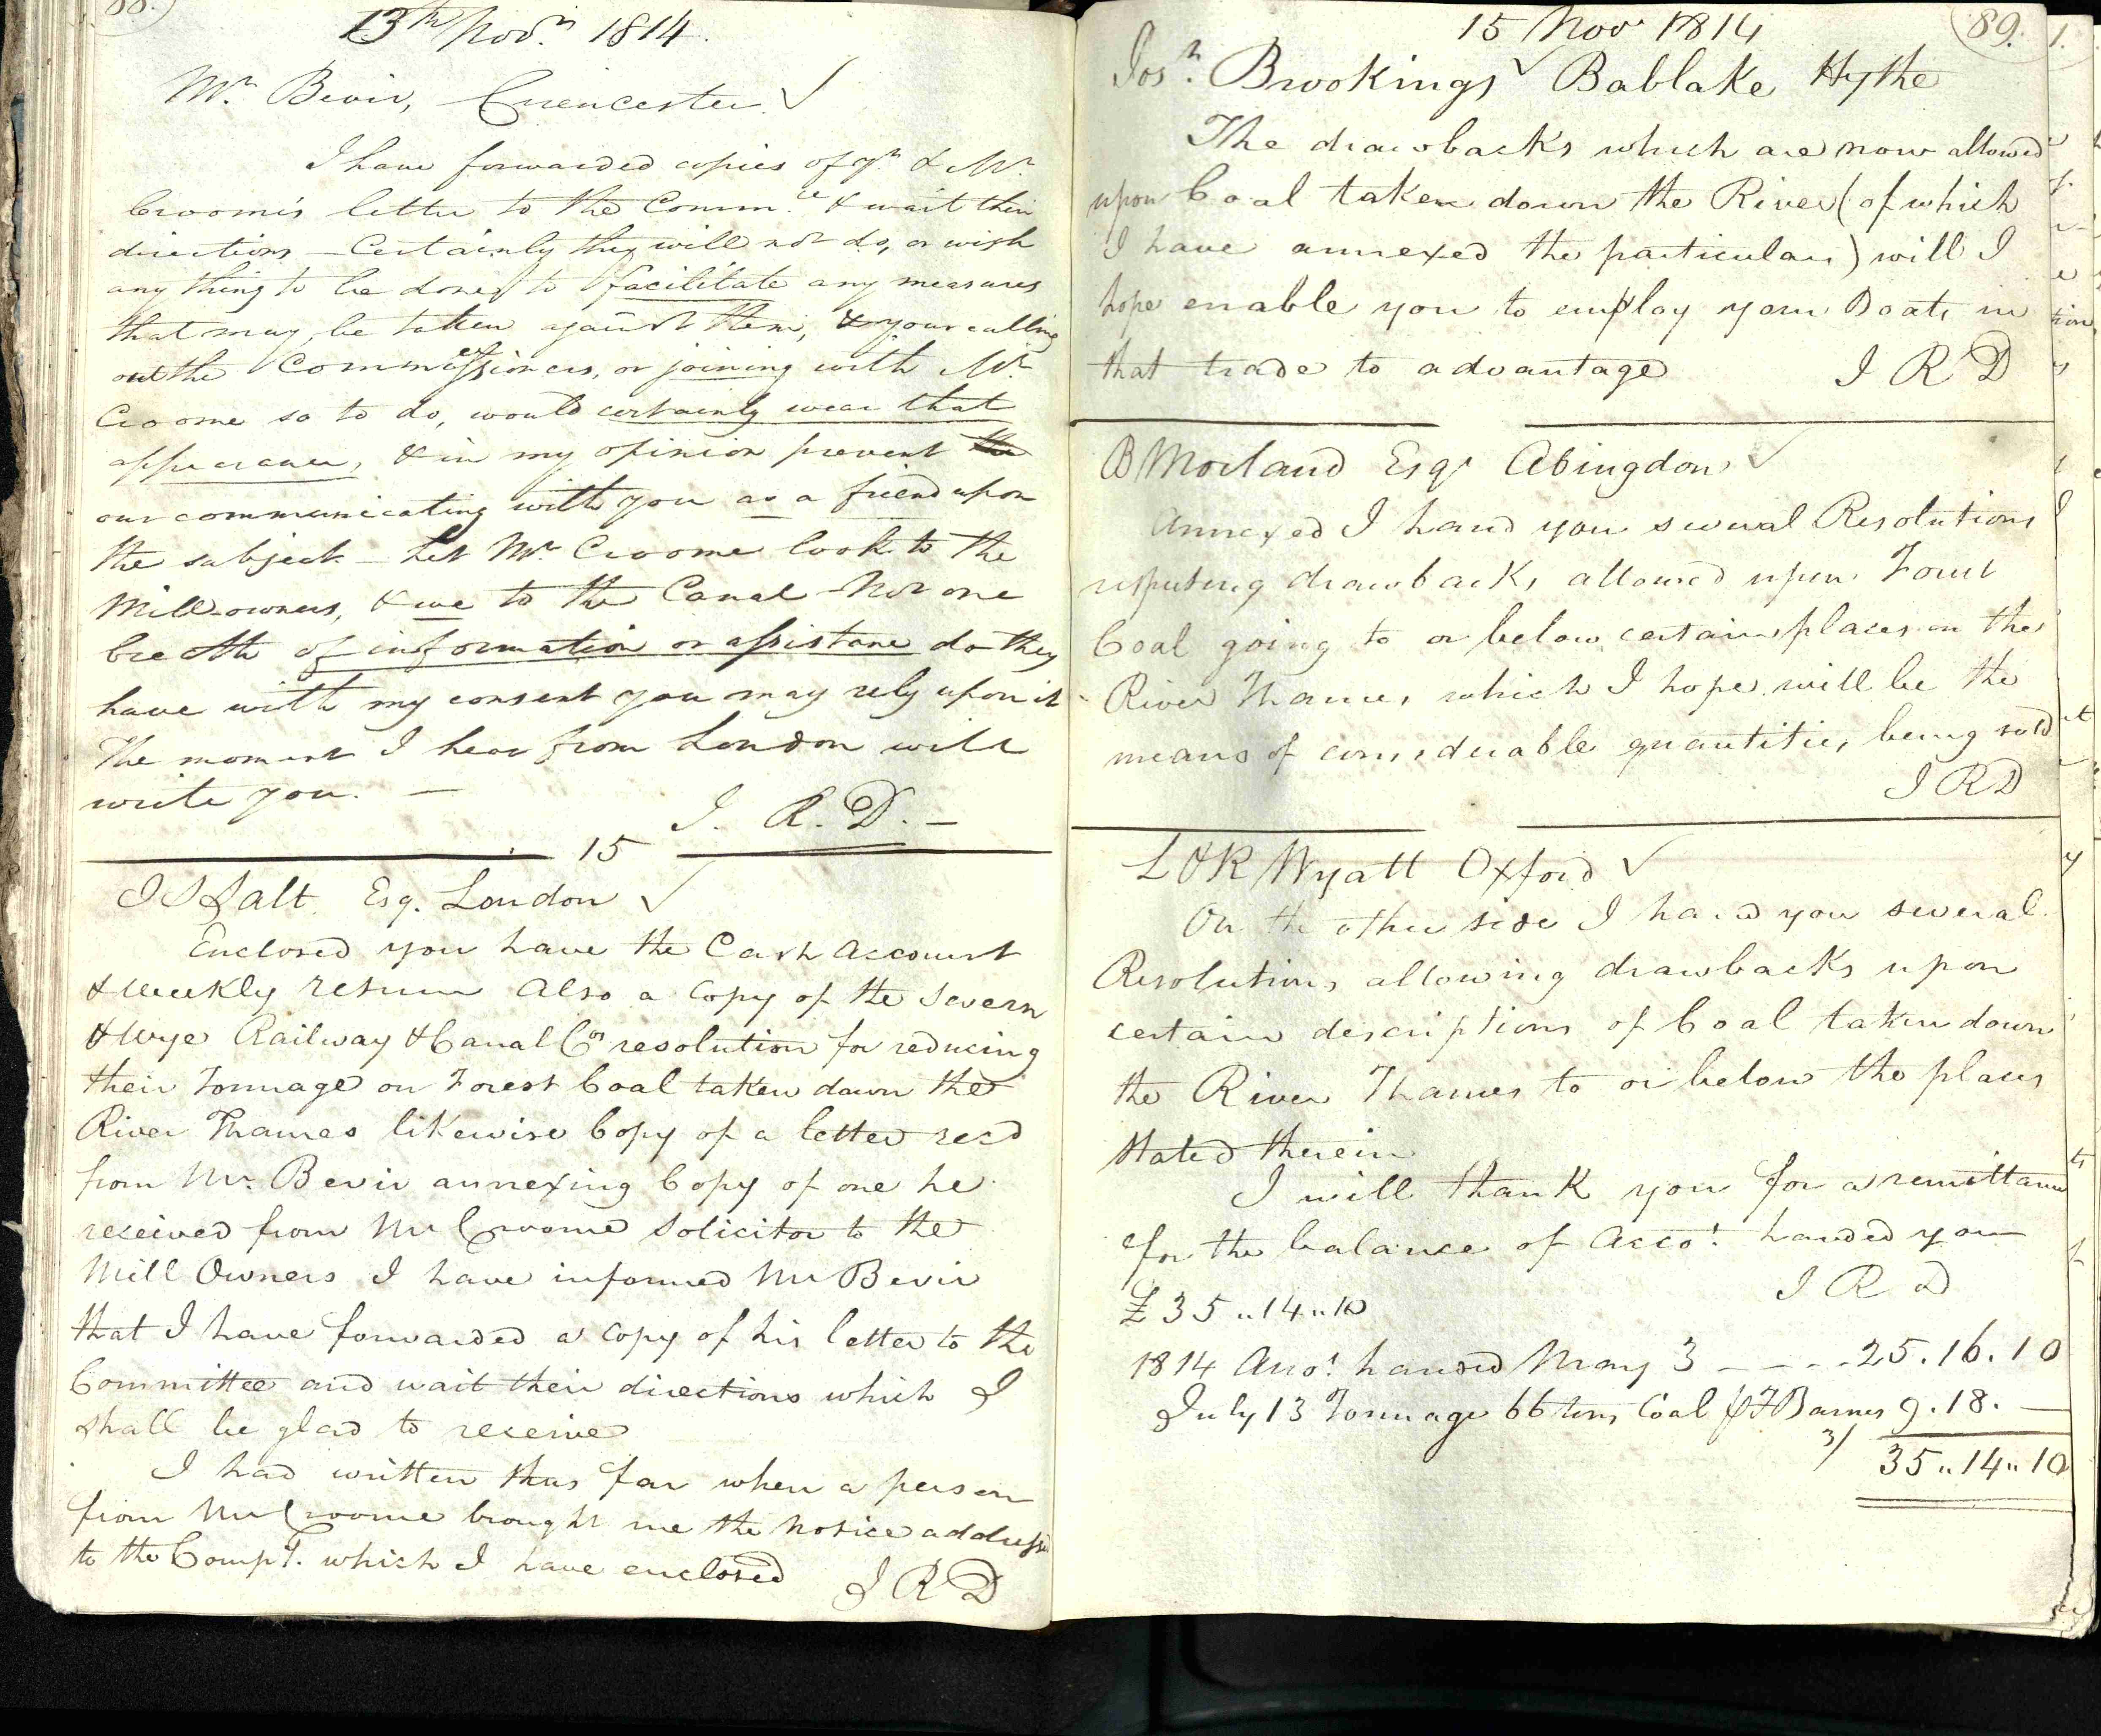 88.
13th Novr. 1814.
Mr. Bevir, Cirencester ✓
I have forwarded copies of yr. & Mr.
Croome's letter to the Commee. & wait their
directions — Certainly they will not do, or wish
any thing to be done, to facilitate any measures
that may be taken against them, & your calling
out the Commissioners, or joining with Mr.
Croome so to do, would certainly wear that
appearance, & in my opinion prevent the
our communicating with you as a friend upon
the subject — Let Mr. Croome look to the
Mill-owners, & we to the Canal — Not one
breath of information or assistance do they
have with my consent you may rely upon it
The moment I hear from London will
write you. —
I. R. D. —
15
I S Salt Esq. London ✓
Enclosed you have the Cash Account
& Weekly return Also a Copy of the Severn
& Wye Railway & Canal Cos resolution for reducing
their Tonnage on Forest Coal taken down the
River Thames likewise Copy of a letter recd
from Mr. Bevir annexing Copy of one he
received from Mr Croome Solicitor to the
Mill Owners I have informed Mr Bevir
that I have forwarded a Copy of his letter to the
Committee and wait their directions which I
shall be glad to receive
I had written thus far when a person
from Mr Croome brought me the Notice address'd
to the Compy. which I have enclosed
I R D
15 Nov 1814
89.
Josh. Brookings ✓ Bablake Hythe
The drawbacks which are now allowed
upon Coal taken down the River (of which
I have annexed the particulars) will I
hope enable you to employ your Boats in
that trade to advantage
I R D
B Morland Esqr Abingdon ✓
Annexed I hand you several Resolutions
respecting drawbacks allowed upon Forest
Coal going to or below certain places on the
River Thames, which I hope will be the
means of considerable quantities being sold
I R D
L & R Wyatt Oxford ✓
On the other side I hand you several
Resolutions allowing drawbacks upon
certain descriptions of Coal taken down
the River Thames to or below the places
stated therein
I will thank you for a remittance
for the balance of Acco^t. handed you
£35 „ 14 „ 10
I R D
1814 Acco^t. handed May 3 — - - - 25 . 16 . 10
July 13 Tonnage 66 tons Coal p J Barnes 9 . 18 . —
3/
35 „ 14 „ 10